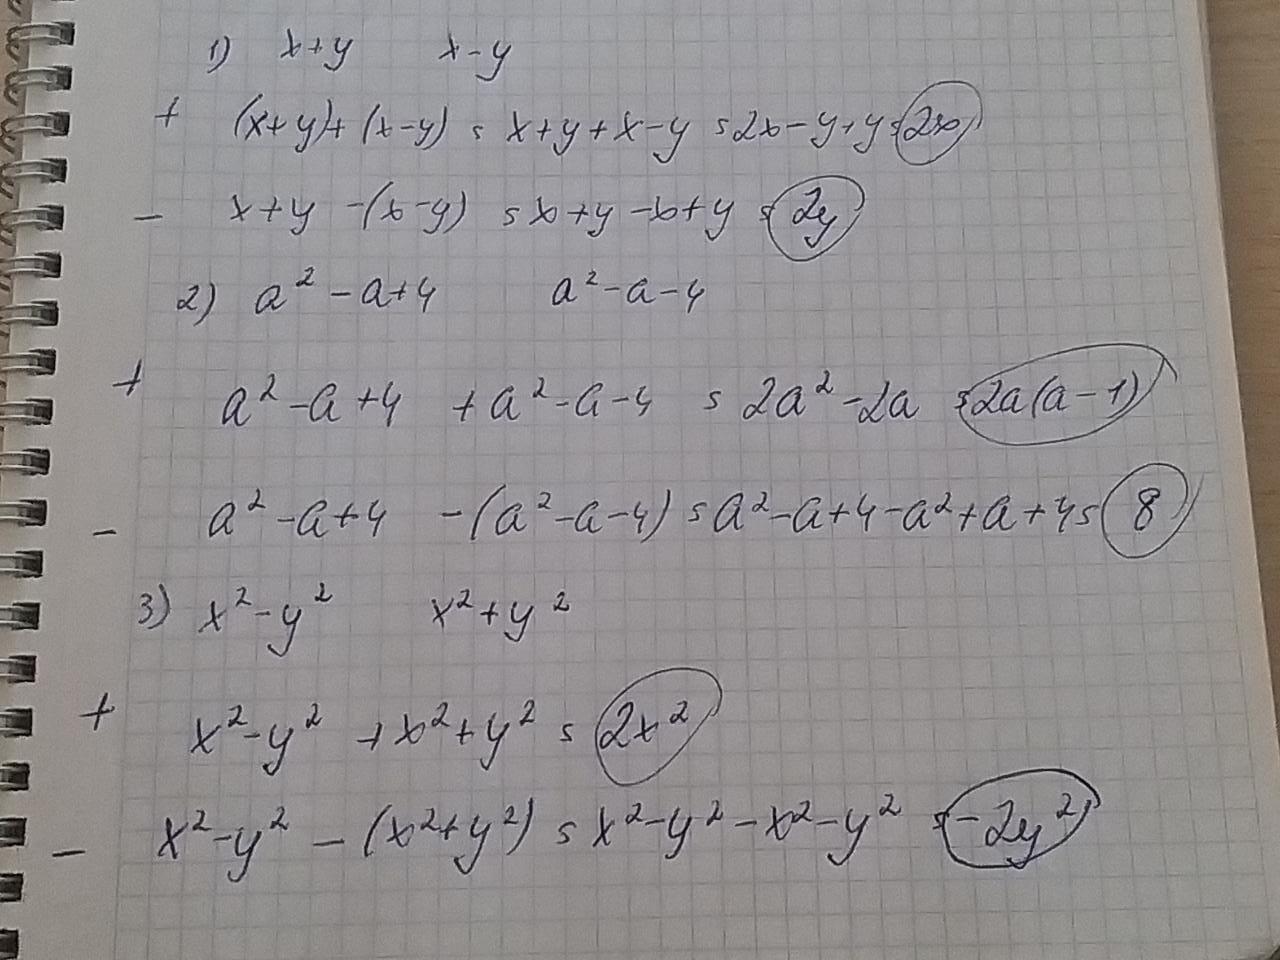 1) x+y x-y
+ (x+y)+(x-y) = x+y+x-y = 2x-y+y = 2x
- x+y -(x-y) = x+y-x+y = 2y
2) a²-a+4 a²-a-4
+ a²-a+4 +a²-a-4 = 2a²-2a = 2a(a-1)
- a²-a+4 -(a²-a-4) = a²-a+4-a²+a+4 = 8
3) x²-y² x²+y²
+ x²-y² +x²+y² = 2x²
- x²-y² -(x²+y²) = x²-y²-x²-y² = -2y²